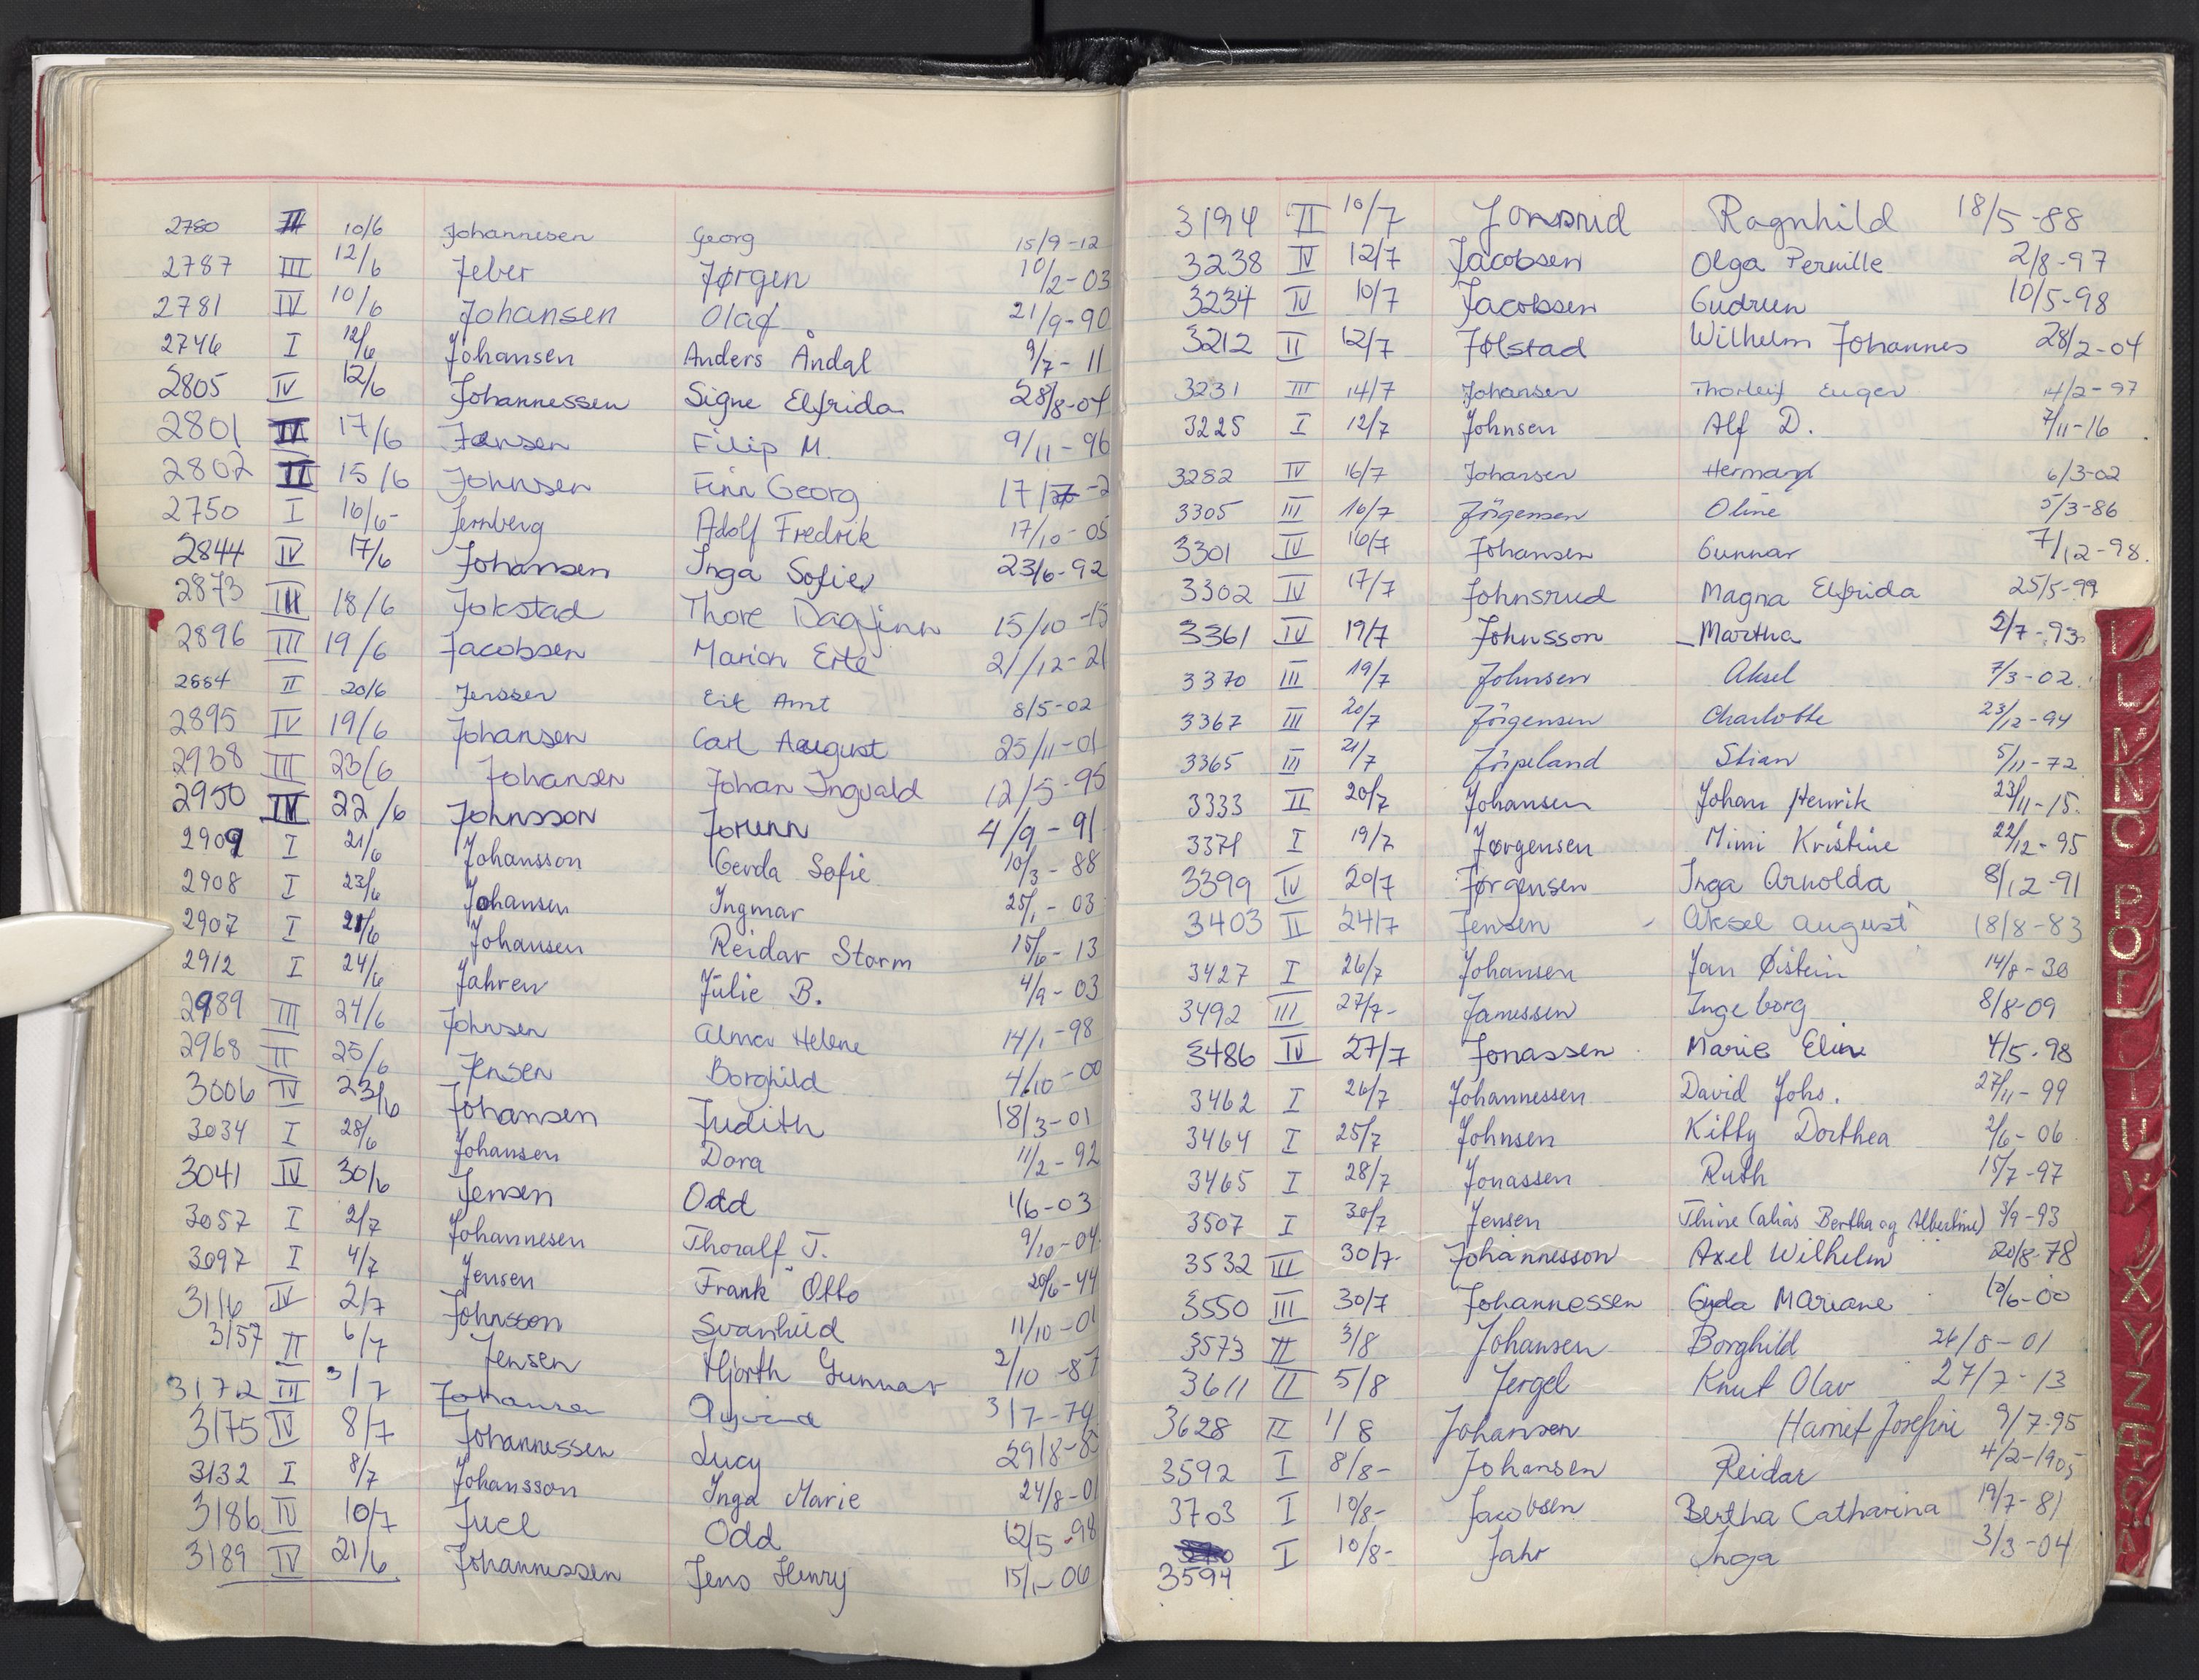 2780 III 10/6 Johannesen Georg 15/9-12
2787 III 12/6 Jeber Jørgen 10/2-03
2781 IV 10/6 Johansen Olaf 21/9-90
2746 I 12/6 Johansen Anders Åndal 9/7-11
2805 IV 12/6 Johannessen Signe Elfrida 28/8-04
2801 17/6 Jansen Filip M. 9/11-96
2802 15/6 Johnsen Finn Georg
2750 I 16/6- Jernberg Adolf Fredrik 17/10-05
2844 IV 17/6 Johansen Inga Sofie 23/6-92
2873 III 18/6 Jokstad Thore Dagfinn 15/10-15
2896 III 19/6 Jacobsen Marion 21/12-21
2884 II 20/6 Jenssen 8/5-02
2895 IV 19/6 Johansen Carl August 25/11-01
2938 III 23/6 Johansen Johan Ingvald 12/5-95
2950 IV 22/6 Johnsson Jorunn 4/9-91
2909 I 21/6 Johansson Gerda Sofie 10/3-88
2908 I 23/6 Johansen Ingmar 25/1-03
2907 I 21/6 Johansen Reidar Storm 15/6-13
2912 I 24/6 Jahren Julie B. 4/9-03
2989 III 24/6 Johnsen Alma Helene 14/1-98
2968 II 25/6 Jensen Borghild 4/10-00
3006 IV 23/6 Johansen Judith 18/3-01
3034 I 28/6 Johansen Dora 11/2-92
3041 IV 30/6 Jensen Odd 1/6-03
3057 I 2/7 Johannesen Thoralf J. 9/10-04
3097 I 4/7 Jensen Frank Otto 20/6-44
3116 IV 2/7 Johnsson Svanhild 11/10-01
3157 II 6/7 Jensen Hjorth Gunnar 2/10-87
3172 III 3/7 Johansen Øyvind 3/7-74
3175 IV 8/7 Johannessen Lucy
3132 I 8/7 Johansson Inga Marie 24/8-01
3186 IV 10/7 Juel Odd 12/5-98
3189 IV 21/6 Johannessen Jens Henry 15/1-06
3194 II 10/7 Jonsrud Ragnhild 18/5-88
3238 IV 12/7 Jacobsen Olga Pernille 2/8-97
3234 IV 10/7 Jacobsen Gudrun 10/5-98
3212 II 12/7 Jølstad Wilhelm Johannes 28/2-04
3231 III 14/7 Johansen Thorleif 14/2-97
3225 I 12/7 Johnsen Alf D. 7/11-16
3282 IV 16/7 Johansen Herman 6/3-02
3305 III 16/7 Jörgensen Oline 5/3-86
3301 IV 16/7 Johansen Gunnar 7/12-98.
3302 IV 17/7 Johnsrud Magna Elfrida 25/5-99
3361 IV 19/7 Johnsson Martha 2/7-93
3370 III 19/7 Johnsen Aksel 7/3-02
3367 III 20/7 Jörgensen Charlotte 23/12-94
3365 III 21/7 Jörpeland Stian 5/11-72
3333 II 20/7 Johansen Johan Henrik 23/11-15
3371 I 19/7 Jørgensen Mimi Kristine 22/12-95
3399 IV 20/7 Jørgensen Inga Arnolda 8/12-91
3403 II 24/7 Jensen Aksel August 18/8-83
3427 I 26/7 Johansen Jan Øistein 14/8-30
3492 III 27/7- Janessen Ingeborg 8/8-09
3486 IV 27/7 Jonassen Marie Elin 4/5-98
3462 I 26/7 Johannessen David Johs. 27/11-99
3464 I 25/7 Johnsen Kitty Dorthea 2/6-06
3465 I 28/7 Jonassen Ruth 15/7-97
3507 I 30/7 Jensen Thine (alias Bertha og Albertine) 3/9-93
3532 III 30/7- Johannesson Axel Wilhelm 20/8-78
3550 III 30/7 Johannessen Gyda Mariane 10/6-00
3573 II 3/8 Johansen Borghild 26/8-01
3611 II 5/8 Jergel Knut Olav 27/7-13
3628 II 1/8 Johansen Harriet Josefine 9/7-95
3592 I 8/8- Johansen Reidar 4/2-1905
3703 I 10/8- Jacobsen Bertha Catharina 19/7-81
I 10/8- Jahr Inga 3/3-04
3594
L
M
N
O
P
Q
R
X
Y
Z
Æ
Ø